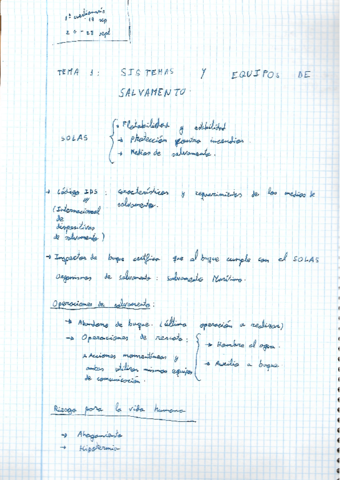 1º cuestionario
18 sep
20 - 23 sept
TEMA 1: SISTEMAS Y EQUIPOS DE
SALVAMENTO.
SOLAS
→ Flotabilidad y estabilidad
→ Protección contra incendios
→ Medios de salvamento.
→ Código IDS: características y requerimientos de los medios de
salvamento.
(Internacional
de
dispositivos
de salvamento)
→ Inspector de buque certifica que el buque cumple con el SOLAS
Organismos de salvamento: salvamento Marítimo.
Operaciones de salvamento:
→ Abandono de buque. (última operación a realizar)
→ Operaciones de rescate:
→ Hombre al agua
→ Auxilio a buque
Acciones momentáneas y
ambas utilizan mismos equipos
de comunicación.
Riesgo para la vida humana
→ Ahogamiento
→ Hipotermia